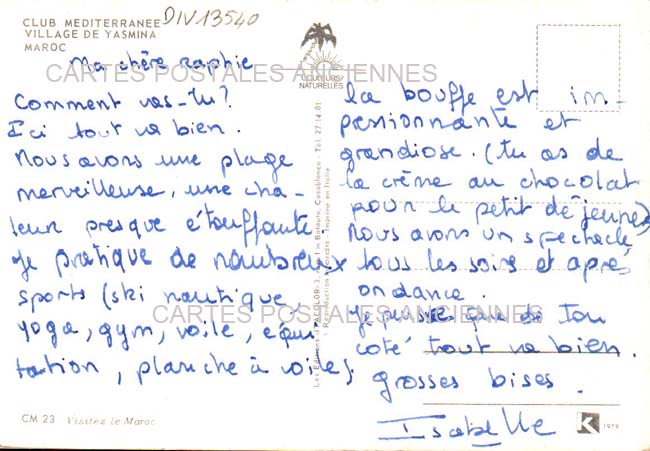 CLUB MEDITERRANEE
VILLAGE DE YASMINA
MAROC
DIV13540
Ma chère raphie
CARTES POSTALES ANCIENNES
Comment vas-tu?
Ici tout va bien.
Nous avons une plage
merveilleuse, une cha-
leur presque étouffante.
Je pratique de nombreux
sports (ski nautique,
yoga, gym, voile, équi
tation, planche à voile)
CM 23 Visitez le Maroc
COULEURS
NATURELLES
Casablanca - Tel 27-14-01
Reproduction Imprimé en Italie
la bouffe est im-
pressionnante et
grandiose. (tu as de
la crème au chocolat
pour le petit déjeuner)
Nous avons un spectacle
tous les soirs et après
on dance.
CARTES POSTALES ANCIENNES
Je pense que de ton
coté tout va bien.
grosses bises.
Isabelle
K 1979